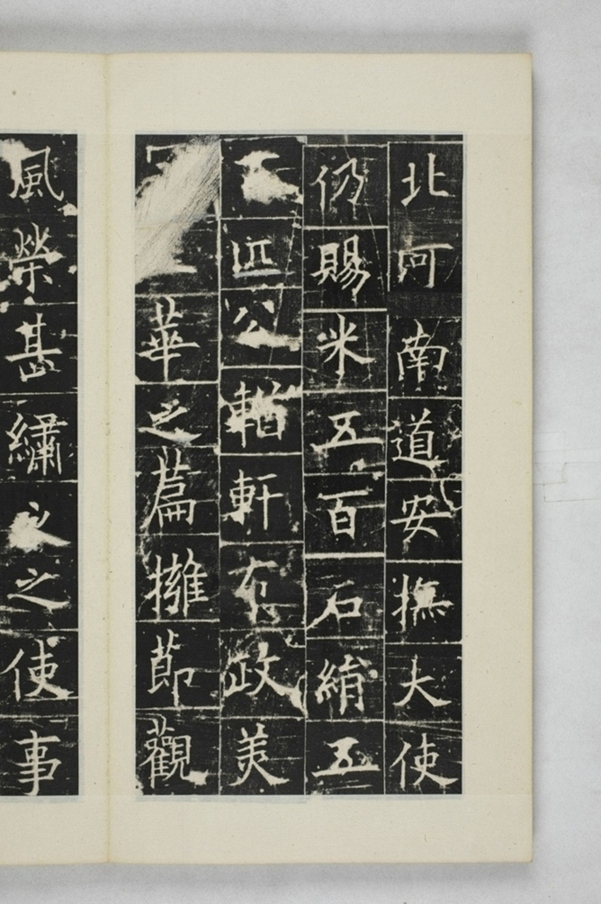 北河南道安撫大使
仍賜米五百石絹五
匹公輶軒布政美
華之篇擁節觀
風榮甚繡衣之使事